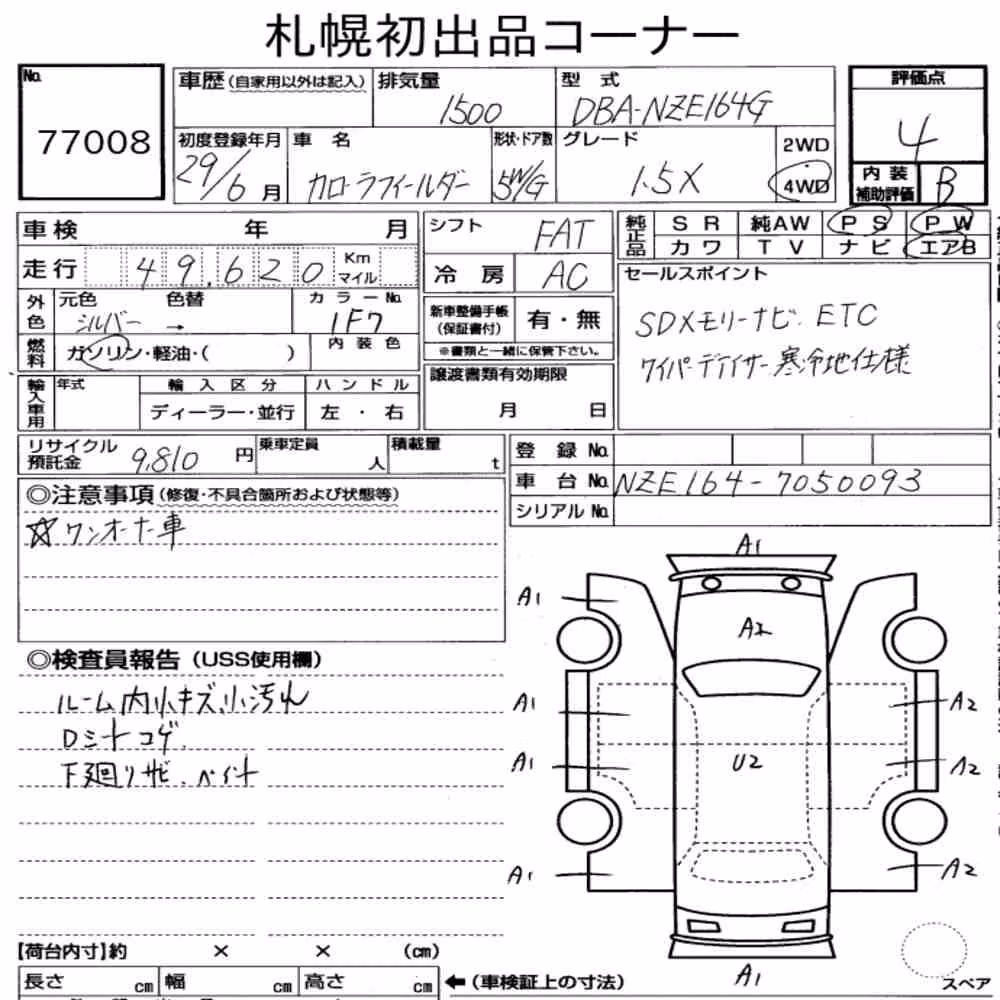 札幌初出品コーナー
No.
77008
車歴(自家用以外は記入)
排気量
1500
型式
DBA-NZE164G
評価点
4
初度登録年月
29/6月
車名
カローラフィールダー
形状・ドア数
5W/G
グレード
1.5X
2WD
4WD
内装
補助評価
B
車検 年 月
走行 49,620 Km
マイル
シフト
FAT
冷房
AC
純正品
SR 純AW PS PW
カワ TV ナビ エアB
外色
元色 色替
シルバー →
カラーNo.
1F7
内装色
燃料
ガソリン・軽油・( )
新車整備手帳
(保証書付)
有・無
※書類と一緒に保管下さい。
セールスポイント
SDXモリーナビ. ETC
ワイパーデアイサー寒冷地仕様
輸入車用
年式
輸入区分
ディーラー・並行
ハンドル
左・右
譲渡書類有効期限
月 日
リサイクル
預託金
9,810 円
乗車定員
人
積載量
t
登録No.
車台No. NZE164-7050093
シリアルNo.
◎注意事項(修復・不具合箇所および状態等)
☆ワンオーナー車
◎検査員報告(USS使用欄)
ルーム内小キズ、小汚れ
Dシートコゲ.
下廻りサビ.ペイント
A1
A1
A2
A1
A2
U2
A1
A2
A1
A2
A1
【荷台内寸】約 × × (cm)
長さ cm 幅 cm 高さ cm ←(車検証上の寸法)
スペア